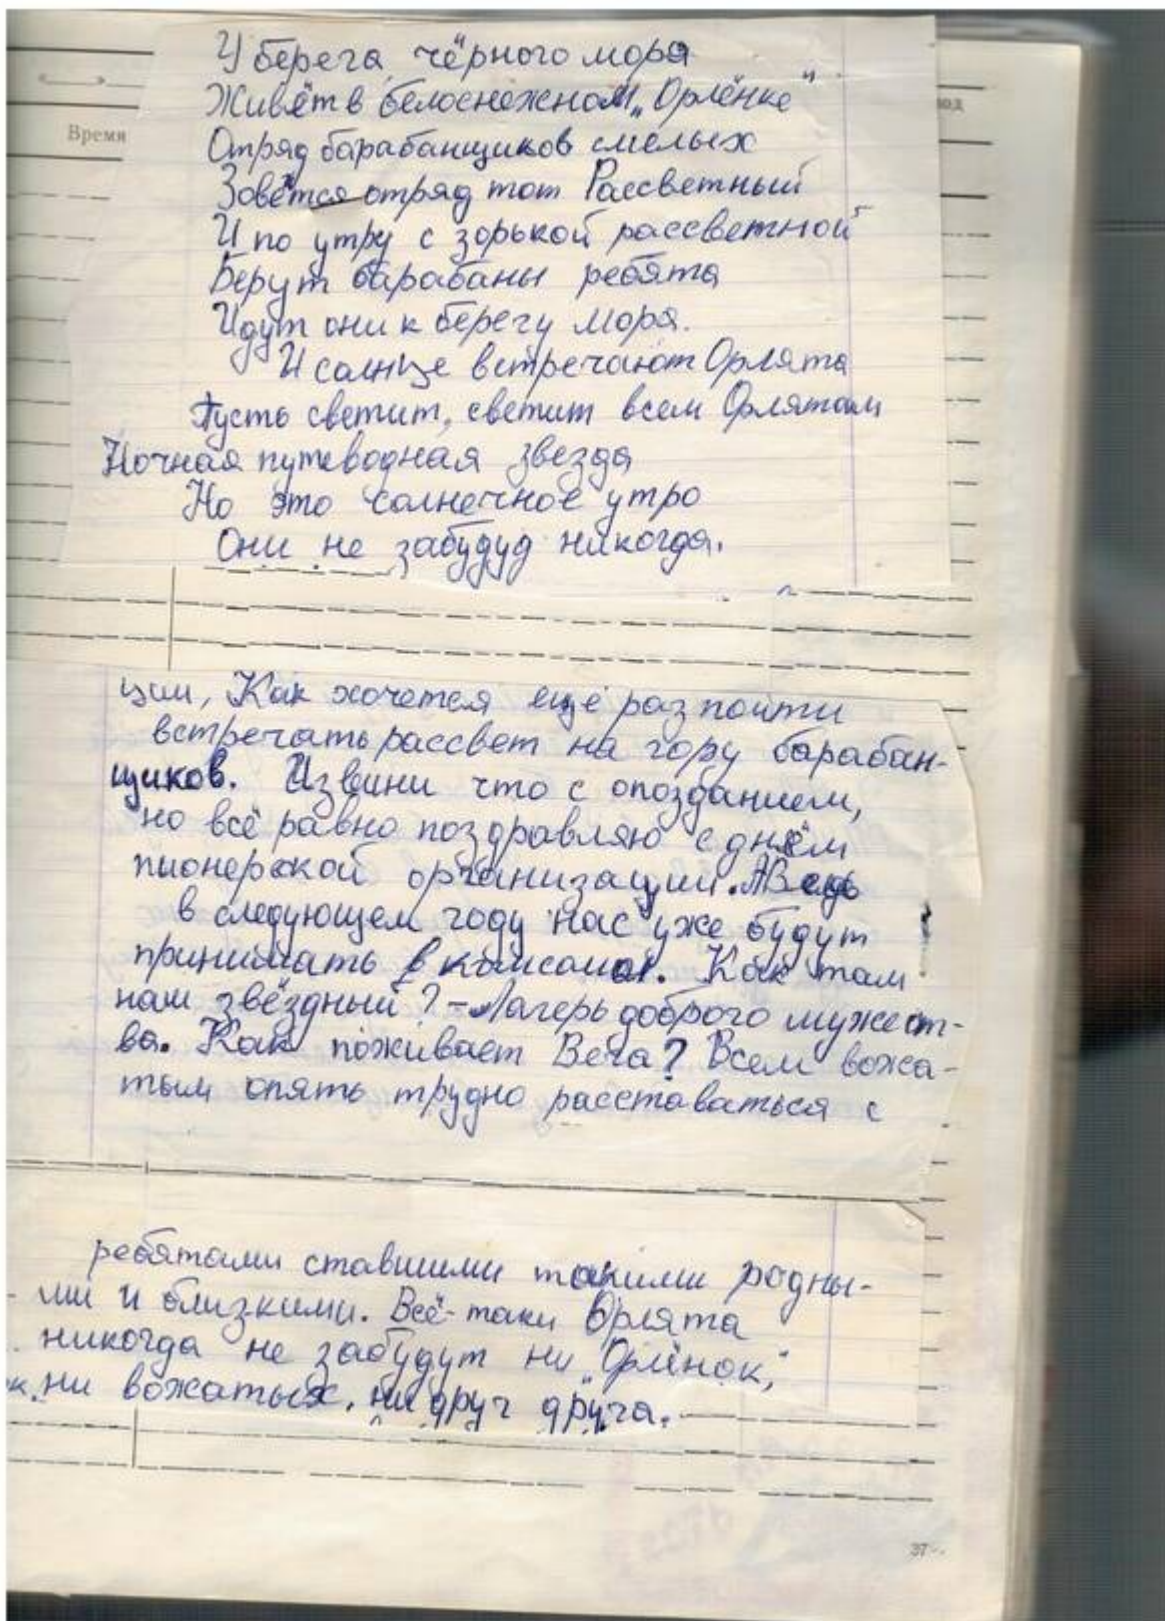 У берега чёрного моря
Живёт в белоснежном „Орлёнке"
Время
Отряд барабанщиков смелых
Зовётся отряд тот Рассветный
И по утру с зорькой рассветной
Берут барабаны ребята
Идут они к берегу моря.
И солнце встречают Орлята
Пусть светит, светит всем Орлятам
Ночная путеводная звезда
Но это солнечное утро
Они не забудуд никогда.
ции, Как хочется ещё раз пойти
встречать рассвет на гору барабан-
щиков. Извини что с опозданием,
но всё равно поздравляю с днём
пионерской организации. А Ведь
в следующем году нас уже будут
принимать в комсомол. Как там
наш звёздный? - Лагерь доброго мужест-
ва. Как поживает Веча? Всем вожа-
тым опять трудно расставаться с
ребятами ставшими такими родны-
ми и близкими. Всё-таки Орлята
никогда не забудут ни „Орлёнок",
ни вожатых, ни друг друга.
37